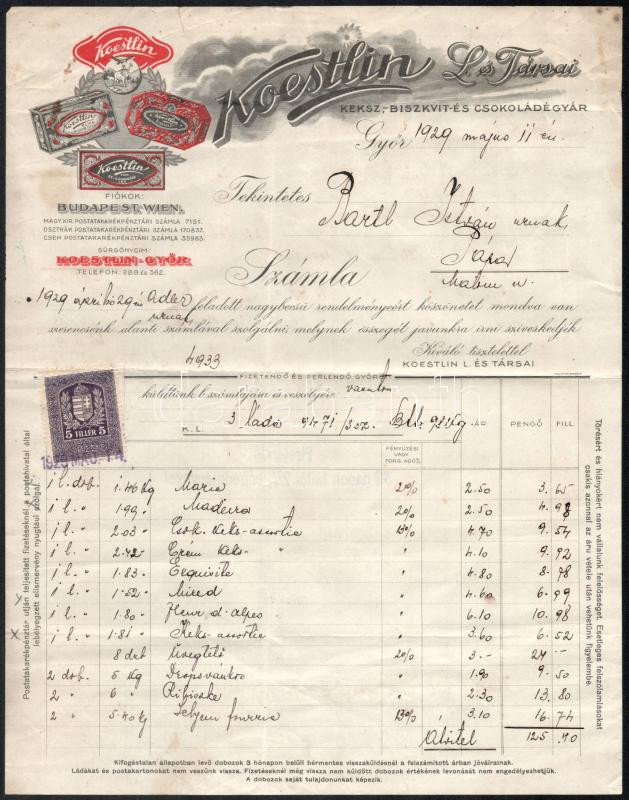 Koestlin
Koestlin
Koestlin
Koestlin
Koestlin L. és Társai
KEKSZ,- BISZKVIT- ÉS CSOKOLÁDÉGYÁR
Győr 1929 május 11 én.
FIÓKOK:
BUDAPEST, WIEN.
MAGY. KIR. POSTATAKARÉKPÉNZTÁRI SZÁMLA 7151.
OSZTRÁK POSTATAKARÉKPÉNZTÁRI SZÁMLA 170837.
CSEH POSTATAKARÉKPÉNZTÁRI SZÁMLA 35983.
SÜRGÖNYCIM:
KOESTLIN-GYŐR
TELEFON: 288 és 362.
Tekintetes Bartl István urnak,
Pápa
Számla
1929 április 29 én Adler urnak feladott nagybecsü rendelményeért köszönetet mondva van
szerencsénk alanti számlával szolgálni, melynek összegét javunkra irni sziveskedjék
Kiváló tisztelettel
KOESTLIN L. ÉS TÁRSAI
4933
FIZETENDŐ ÉS PERLENDŐ GYŐRÖTT
küldtünk b. számlájára és veszélyére vasuton
K. L. 3 láda 9471/ Btt. 92 kg ÁR PENGŐ FILL.
FÉNYŰZÉSI VAGY FORG. ADÓ%
5 FILLÉR 5
1 l. dob. 1.46 kg Maria 2% 2.50 3.65
1 l. " 1.99 " Madeira 2% 2.50 4.98
1 l. " 2.03 " Csok. Keks-assortie 13% 4.70 9.54
1 l. " 2.42 " Crém Keks- " " 4.10 9.92
1 l. " 1.83 " Exquisite " 4.80 8.78
1 l. " 1.52 " Mixed " 4.60 6.99
1 l. " 1.80 " Fleur d. alpes " 6.10 10.98
1 l. " 1.81 " Keks-assortie " 3.60 6.52
8 drb Üvegtető 2% 3.- 24 -
2 dob. 5 kg " 1.90 9.50
2 " 6 " Ribiszke " 2.30 13.80
2 " 5.40 kg Selyem 13% 3.10 16.74
125.40
Postatakarékpénztár utján teljesített fizetéseknél a postahivatal által
lebélyegzett elismervény nyugtául szolgál.
Törésért és hiányokért nem vállalunk felelősséget. Esetleges felszólamlásokat
csakis azonnal az áru vétele után vehetünk figyelembe.
Kifogástalan állapotban levő dobozok 3 hónapon belüli bérmentes visszaküldésénél a felszámított árban jóváiratnak.
Ládákat és postakartonokat nem veszünk vissza. Fizetéseknél még vissza nem küldött dobozok értékének levonását nem engedélyezhetjük.
A dobozok saját tulajdonunkat képezik.